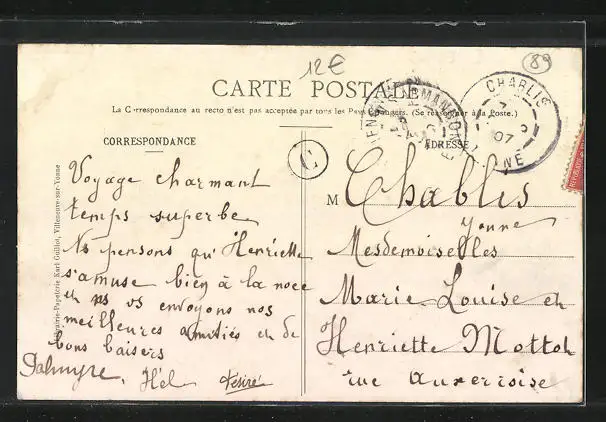 12€
89
CARTE POSTALE
La Correspondance au recto n'est pas acceptée par tous les Pays Étrangers. (Se renseigner à la Poste.)
CORRESPONDANCE
Voyage charmant
temps superbe
Ns pensons qu'Henriette
s'amuse bien à la noce
et ns vs envoyons nos
meilleures amitiés et de
bons baisers
Palmyre. Hél Désiré
Librairie-Papeterie Karl Guillot, Villeneuve-sur-Yonne
C
CHABLIS
07
ADRESSE
M Chablis
Yonne
Mesdemoiselles
Marie Louise et
Henriette Mottot
rue Auxerroise